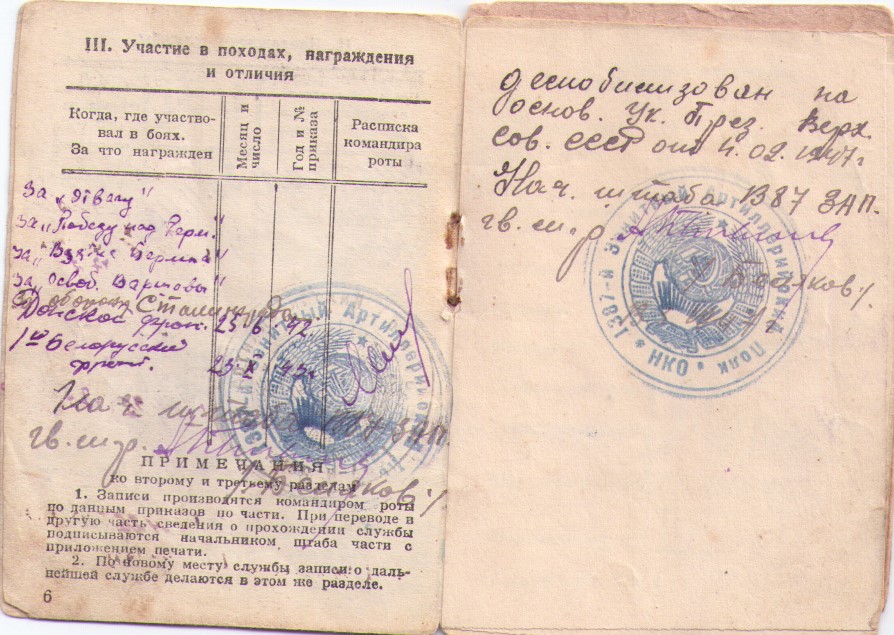 III. Участие в походах, награждения
и отличия
Когда, где участво-
вал в боях.
За что награжден
Месяц и
число
Год и №
приказа
Расписка
командира
роты
За „Отвагу"
За „Победу над Герм."
За „Взятие Берлина"
За Освоб. Варшавы"
За оборону Сталинграда
Донской фрон. 25 6 42
1й Белорусский
фронт. 23 45г
Нач штаба 1387 ЗАП.
гв. м-р.
/Беляков/
ПРИМЕЧАНИЯ
ко второму и третьему разделам
1. Записи производятся командиром роты
по данным приказов по части. При переводе в
другую часть сведения о прохождении службы
подписываются начальником штаба части с
приложением печати.
2. По новому месту службы записи о даль-
нейшей службе делаются в этом же разделе.
6
демобилизован на
основ. Ук. През. Верх.
Сов. СССР от 4.02.1947г
Нач. штаба 1387 ЗАП.
гв. м-р
/Беляков/
1387-й Зенитный Артиллерийский Полк
* НКО *